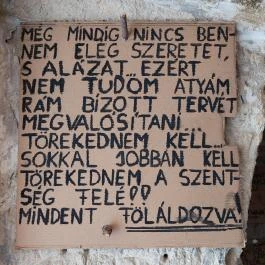 MÉG MINDIG NINCS BEN-
NEM ELÉG SZERETET,
S ALÁZAT... EZÉRT
NEM TUDOM ATYÁM
RÁM BÍZOTT TERVÉT
MEGVALÓSÍTANI...
TÖREKEDNEM KELL...
SOKKAL JOBBAN KELL
TÖREKEDNEM A SZENT-
SÉG FELÉ!!
MINDENT FÖLÁLDOZVA!